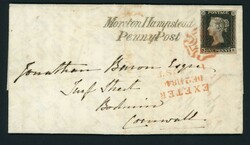 Moreton Hampstead
Penny Post
Jonathan Baron Esqr
Turf Street
Bodmin
Cornwall
EXETER